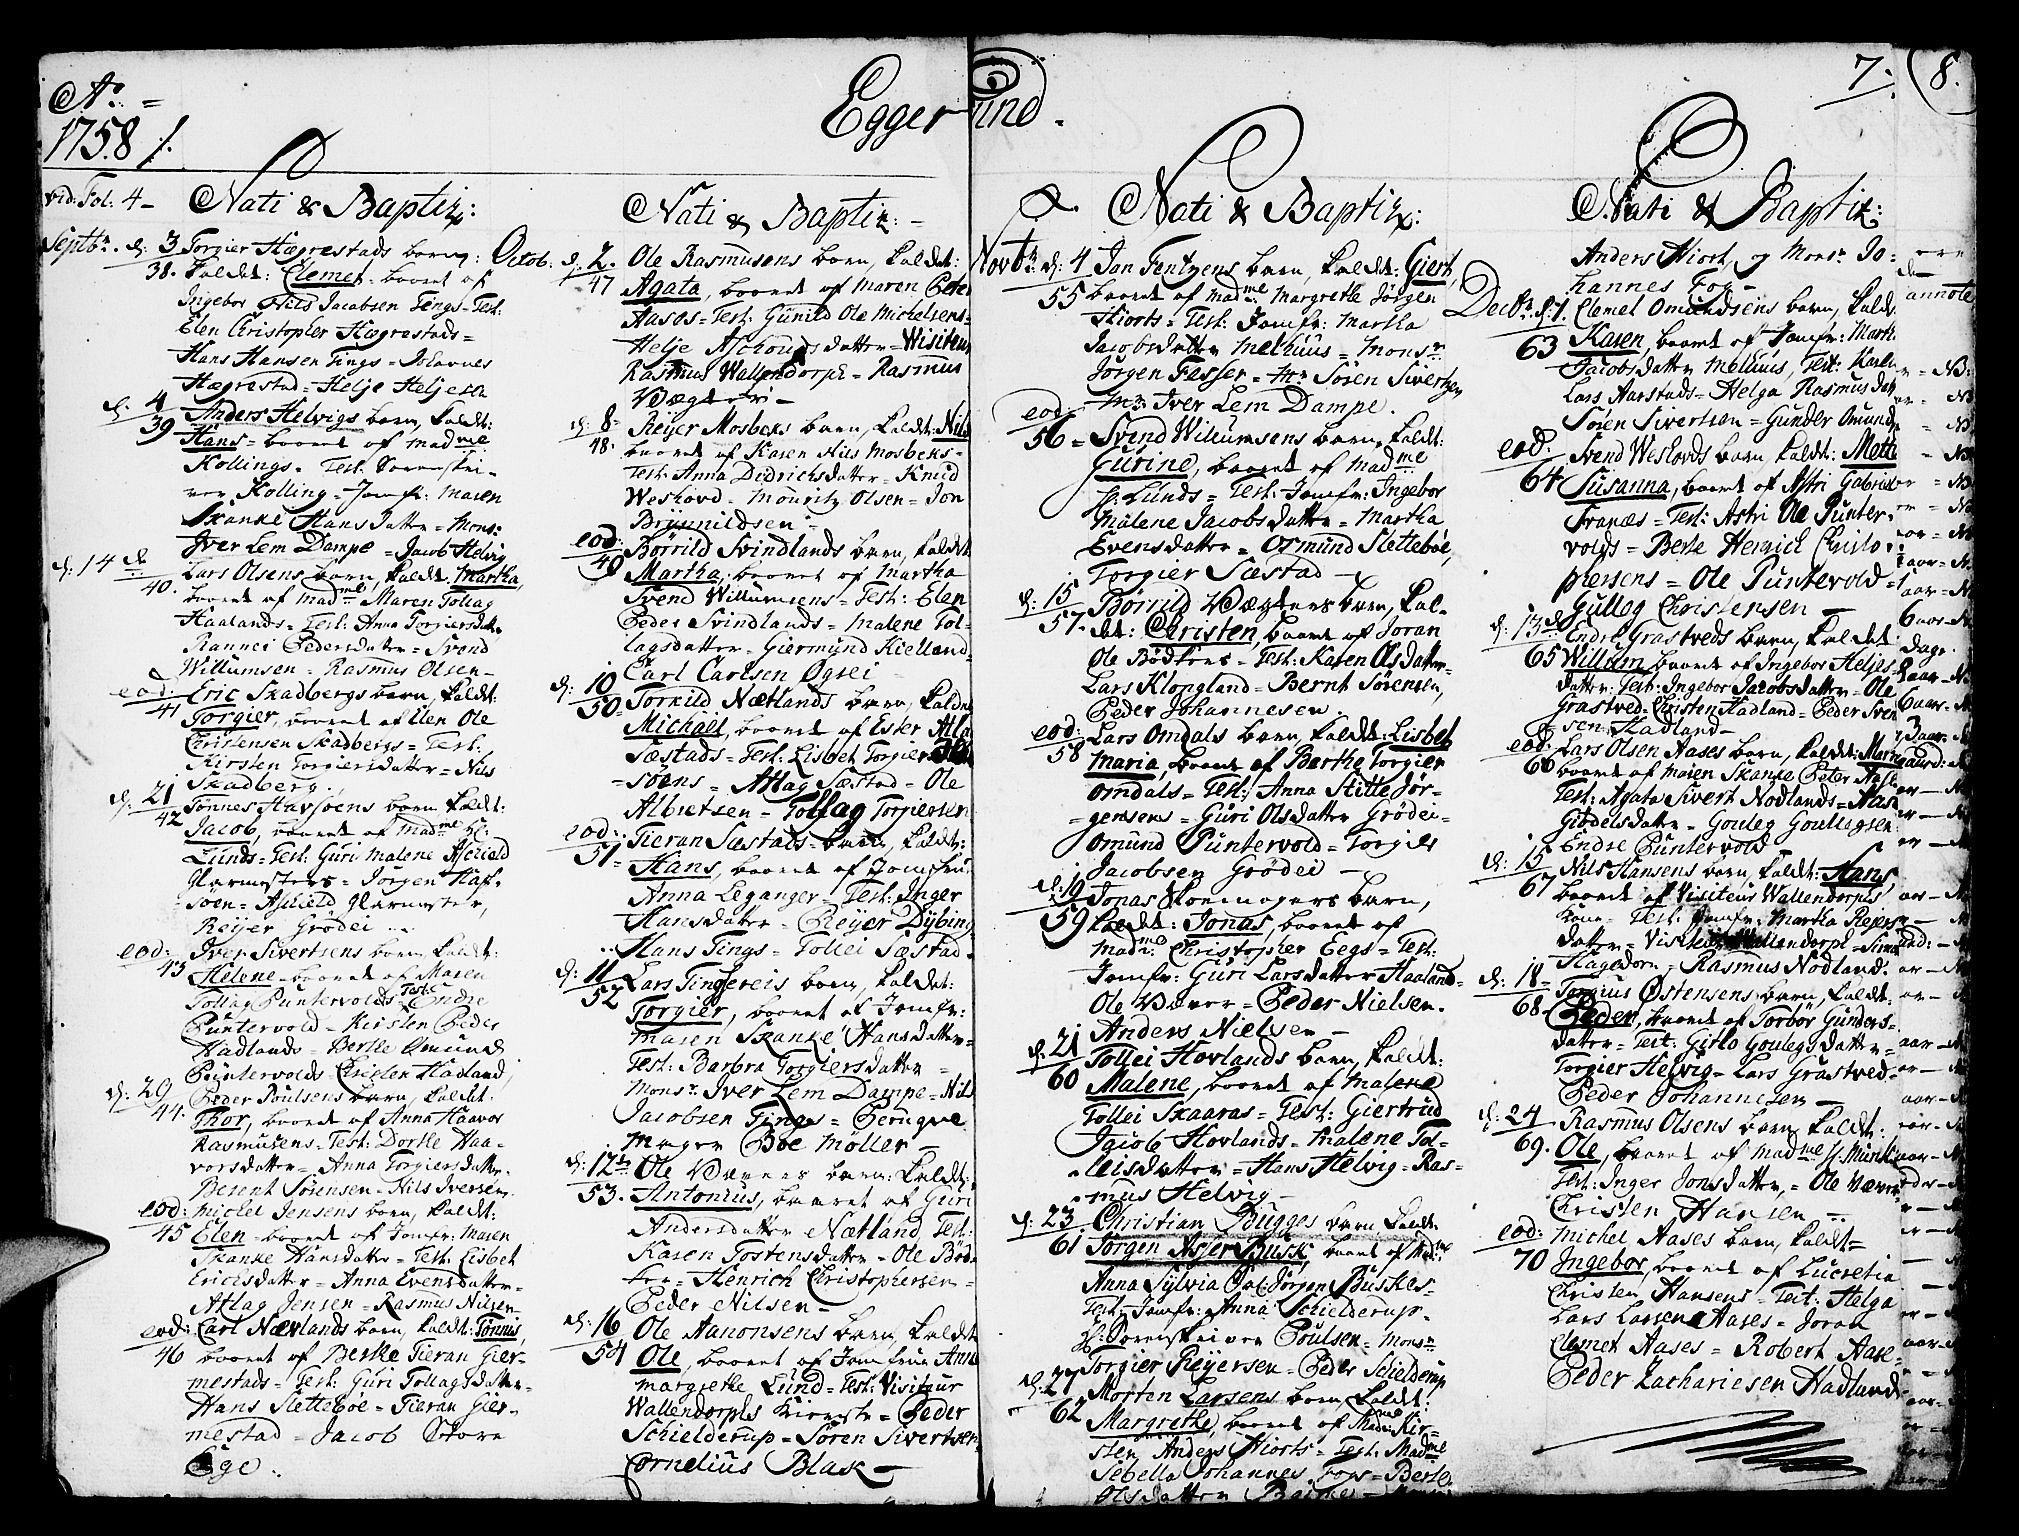 Ao
1758
Eggersund
7.
8.
vid: Fol. 4
Nati & Baptiz:
Septbr. d. 3 Torgier Hægrestads barn,
38. kaldet: Clemet, baaret af
Ingebor Nils Jacobsen Tengs = Test:
Elen Christopher Hægrestads =
Hans Hansen Tings =
Hægrestad = Helje Heljesen
d. 4 Anders Helvigs barn, kaldet:
39 Hans = baaret af madme
Kollings. Test. Sorenskri-
ver Kolling = Jomfr: Maren
Skanke Hans Datter = Mons:
Iver Lem Dampe = Jacob Helvig
d. 14 Lars Olsens barn, kaldet. Martha,
40. baaret af madme Maren Tollag
Haalands = Test: Anna Torgiersdatter
Rannei Pedersdatter = Svend
Willumsen = Rasmus Olsen =
eod: Eric Skadbergs barn, kaldet:
41 Torgier, baaret af Elen Ole
Christensen Skadbergs = Test:
Kirsten Torgiersdatter = Nils
Skadberg.
d. 21 Tønnes Havsøens barn kaldet:
42 Jacob, baaret af madme Hr:
Lunds = Test: Guri Malene Aschield
Glarmesters = Jørgen Haf-
søen = Aschield Glarmester,
Reijer Grødei
eod: Iver Sivertsens barn, kaldet:
43 Helene = baaret af Maren
Tollag Puntervolds Test: Endre
Puntervold = Kirsten Peder
Hadlands = Berthe Omund
Puntervolds = Christen Hadland,
d. 29 Peder Poulsens barn, kaldet.
44. Thor, baaret af Anna Haavor
Rasmusens = Test: Dorthe Haa-
vorsdatter = Anna Torgiersdatter.
Berent Sørensen = Nils Iversen.
eod: Michel Jensens barn, kaldet:
45 Elen = baaret af Jomfr: Maren
Skanke Hansdatter = Test: Lisbet
Ericksdatter = Anna Evensdatter =
Atlag Jensen = Rasmus Nilsen =
eod: Carl Nævlands barn, kaldet: Tønnis,
46 baaret af Berthe Tieran Gier-
mestads = Test: Guri Tollagsdatter =
Hans Slettebøe = Tieran Gier-
mestad = Jacob Store
Ege.
Nati & Baptiz:
Octob: d. 2. Ole Rasmusens barn, kaldet:
47 Agata, baaret af Maren Peter
Aases = Test: Gunild Ole Michelsens =
Helje Aschouds datter = Visiteur
Rasmus Wallendorph = Rasmus
Vægter =
d. 8 Reijer Mosbeks barn, kaldet: Nils
48. baaret af Karen Nils Mosbeks =
Test: Anna Didrichsdatter = Knud
Weshovd = Mouritz Olsen = Jon
Brynnildsen =
eod: Børrild Svindlands barn, kaldet
49 Martha, baaret af Martha
Svend Willumsens = Test: Elen
Peder Svindlands = Malene Tol-
lagsdatter = Giermund Kielland =
Carl Carlsen Øgrei
d. 10 Torkild Nætlands barn, kaldet
50 Michael, baaret af Ester Atla
Sæstads = Test: Lisbet Torgier
= søens = Atlag Sæstad = Ole
Albretsen = Tollag Torgiersen
eod: Tieran Sæstads barn, kaldet:
51 Hans, baaret af Jomfru
Anna Leganger = Test: Inger
Hansdatter = Reijer Dybing
Hans Tings = Tollei Sæstad.
d. 11 Lars Tingereis barn, kaldet:
52 Torgier, baaret af Jomfr:
Maren Skanke Hansdatter =
Test: Barbra Torgiersdatter =
Monsr: Iver Lem Dampe = Nils
Jacobsen Tings =
mager Boe Møller =
d. 12te Ole Væves barn: kaldet:
53. Antonius, baaret af Guri
Andersdatter Nætland, Test:
Karen Tostensdatter = Ole Bød-
ker = Henrich Christophersen =
Peder Nilsen =
d. 16 Ole Aanonsens barn, kaldet
54 Ole, baaret af Jomfrue Anna
Margrethe Lund = Test: Visiteur
Wallendorphs Kierste = Peder
Schielderup = Søren Sivertsen
Cornelius Blask =
Nati & Baptiz:
Novbr: d. 4 Jan Tentzens barn, kaldet: Giert,
55 baaret af Madme Margrethe Jørgen
Hiorts = Test: Jomfr: Martha
Jacobsdatter Melhuus = Monsr
Jørgen Fesser = Mr Søren Sivertsen
Mr: Iver Lem Dampe.
eod
56 = Svend Willumsens barn, kaldet:
Gurine, baaret af madme
Hr: Lunds = Test: Jomfr: Ingebor
Malene Jacobsdatter = Martha
Evensdatter = Osmund Slettebøe,
Torgier Sæstad =
d: 15 Børrild Vægters barn, kal-
57. det: Christen, baaret af Joran
Ole Bødkers = Test: Karen Olsdatter =
Lars Klongland = Bernt Sørensen,
Peder Johannesen.
eod: Lars Omdals barn, kaldet: Lisbet
58 Maria, baaret af Berthe Torgier
Omdals = Test: Anna Sitte Jør-
gensens = Guri Olsdatter Grødei =
Omund Puntervold = Torgils
Jacobsen Grødei =
d. 19 Jonas Skoemagers barn,
59 kaldet: Jonas, baaret af
Madme Christopher Eegs = Test:
Jomfr: Guri Larsdatter Haaland =
Ole Væver = Peder Nielsen.
Anders Nielsen =
d. 21 Tollei Hovlands barn, kaldet:
60 Malene, baaret af Malene
Tollei Skaaras = Test: Giertrud
Jacob Hovlands = Malene Tol-
leisdatter = Hans Helvig = Ras-
mus Helvig =
d. 23 Christian Bugges barn kaldet:
61 Jørgen Asser Busk, baaret af Madme
Anna Sylvia Sal: Jørgen Buskes =
Test: Jomfr: Anna Schielderup =
Hr: Sorenskriver Poulsen = Monsr
Torgier Reijersen = Peder Schielderup
d. 27 Morten Larsens barn, kaldet:
62 Margrethe, baaret af Madme Kir-
sten Anders Hiorts = Test: Madme
Sebella Johannes Fogs = Berte
Olsdatter
Nati & Baptiz:
Anders Hiort, og Monsr Jo:
hannes Fog =
Decbr. d. 1. Clemet Omundsens barn, kaldet
63 Karen, baaret af Jomfr: Martha
Jacobsdatter Melhuus, Test: Karen
Lars Aarstads = Helga Rasmusdatter
Søren Sivertsen = Gunder Omunds
eod. Svend Weslovds barn kaldet: Mette
64 Susanna, baaret af Astri Gabriel
Tranæs = Test: Astri Ole Punter-
volds = Berte Henrich Christo-
phersens = Ole Puntevold =
Gulleg Christensen =
d. 13de Endre Grastveds barn, kaldet
65 Willum baaret af Ingebor Heljes-
datter: Test: Ingebor Jacobsdatter = Ole
Grastved = Christen Hadland = Peder Sven
sen Hadland =
eod: Lars Olsen Aases barn, kaldet: Maren
66 baaret af Maren Skanke Peter Aases
Test: Agata Sivert Nodlands = Aase
Giødelsdatter = Gouleg Goulegsen
Endre Puntervold
d. 15 Nils Hansens barn, kaldet: Hans,
67 baaret af Visiteur Wallendorphs
Kone = Test: Jomfr: Martha Reiers
datter = Visiteur Wallendorph = Simon
Hagedorn = Rasmus Nodland.
d. 18 Torgius Østensens barn, kaldet:
68. Peder, baaret af Torbor Gunders-
datter = Test: Gitlo Goulegsdatter =
Torgier Helvig = Lars Grastved =
Peder Johannesen =
d. 24 Rasmus Olsens barn, kaldet:
69. Ole, baaret af Madme Hr. Munk
Test: Inger Jonsdatter, = Ole Væver
Christen Hansen =
eod: Michel Aases barn, kaldet =
70 Ingebor, baaret af Lucretia
Christen Hansens = Test: Helga
Lars Larsen Aases = Joran
Clemet Aases = Robert Aase =
Peder Zachariesen Hadland
annote